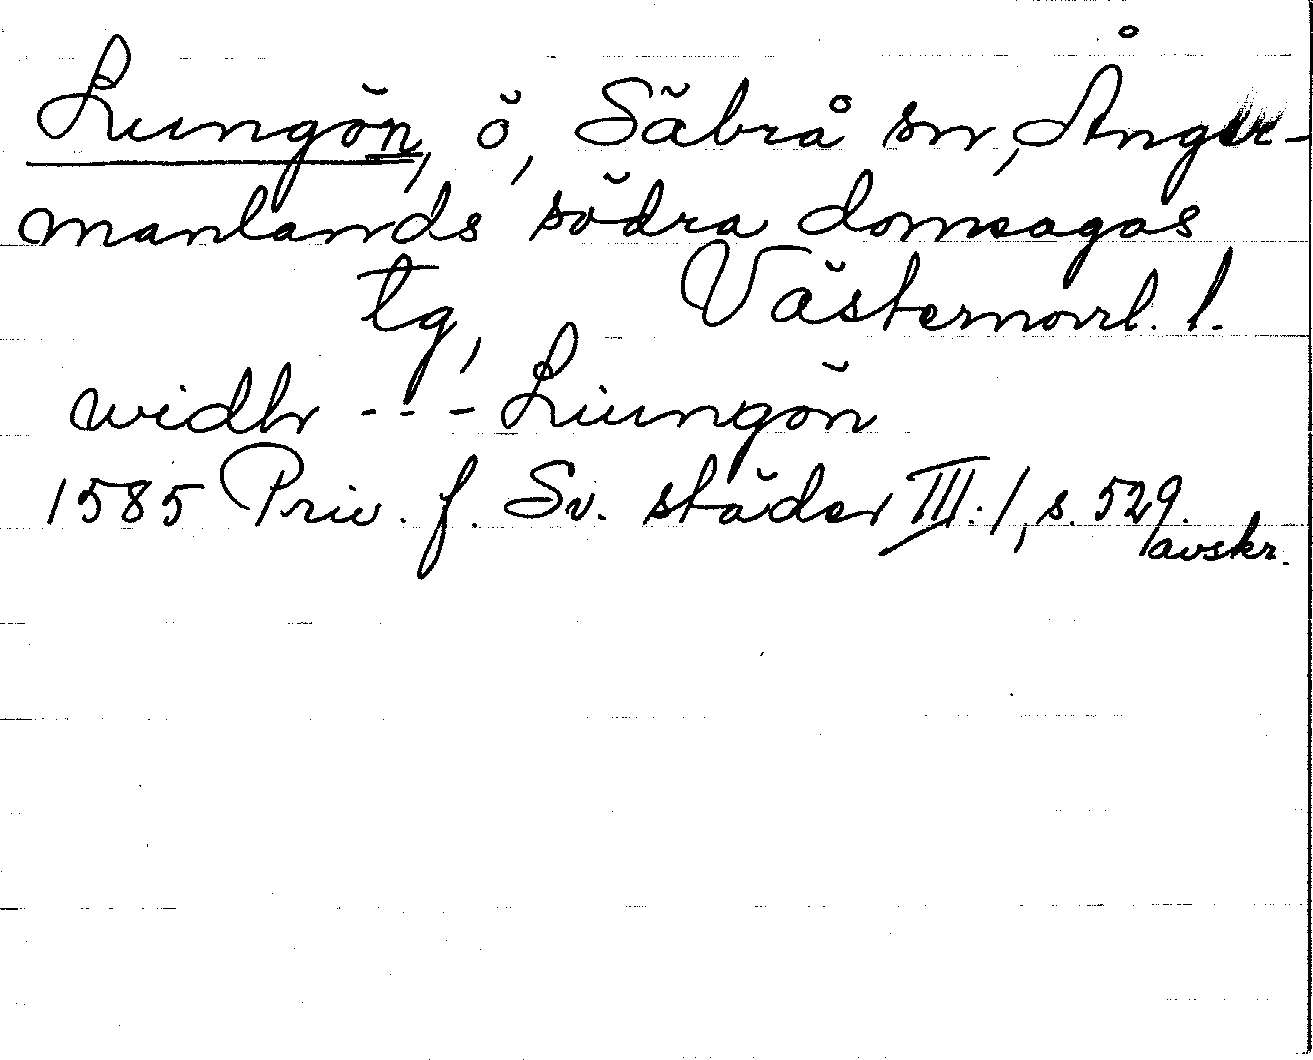 Lungön, ö, Säbrå sn, Ånger-
manlands södra domsagas
tg, Västernorrl. l.
widhr - - - Liungön
1585 Priv. f. Sv. städer III:1, s. 529.
avskr.